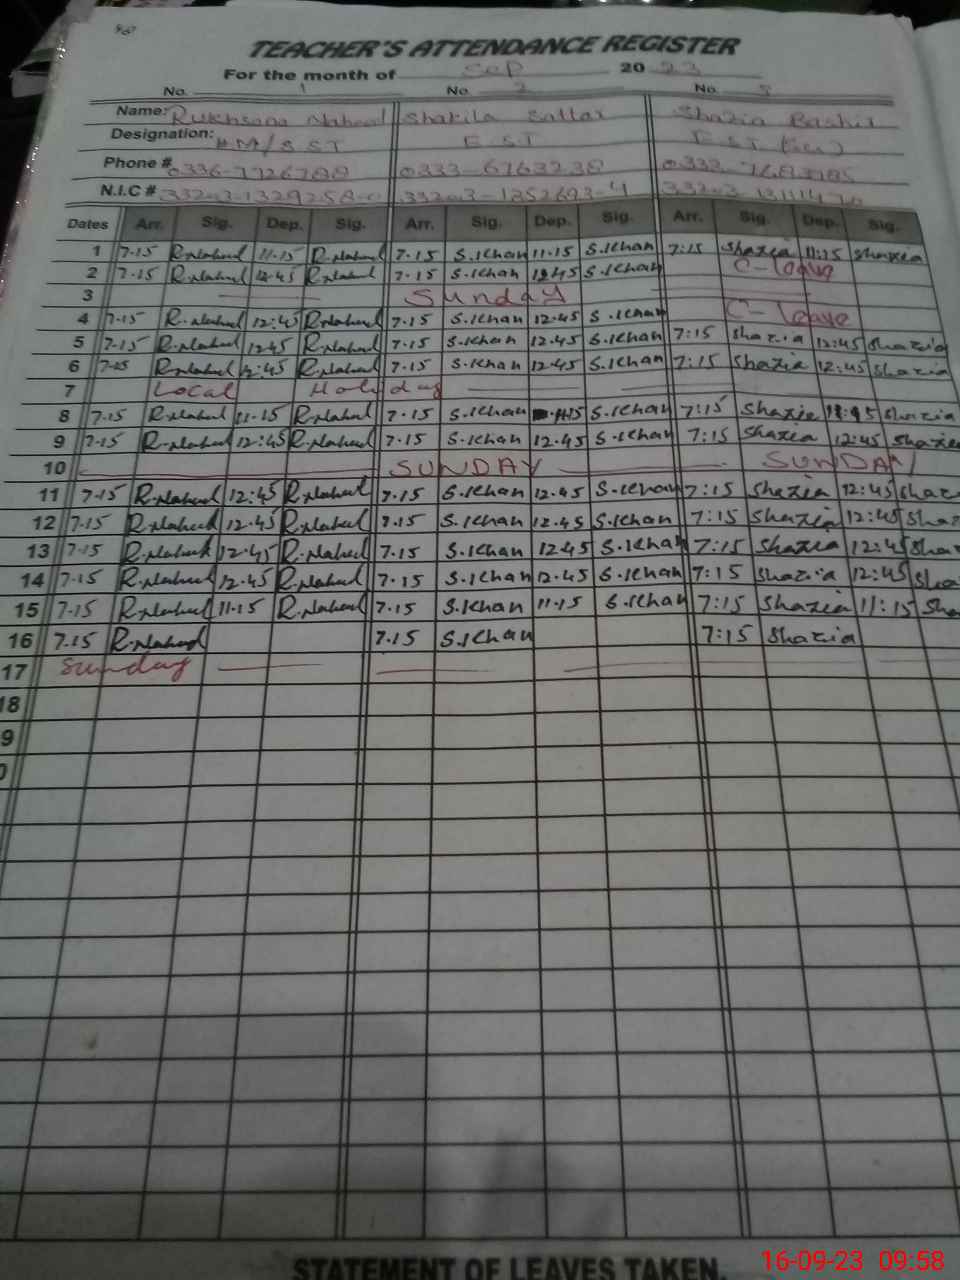 TEACHER'S ATTENDANCE REGISTER
For the month of Sep 2023
No. 1 No. 2 No.
Name: Rukhsana Naheed Shakila Sattar Shazia Bashir
Designation: HM/SST E.ST E.ST
Phone # 0336-7726788 0333-6763238
N.I.C #
Dates Arr. Sig. Dep. Sig. Arr. Sig. Dep. Sig. Arr. Sig. Dep. Sig.
1 7.15 R.Naheed 11.15 R.Naheed 7.15 S.Khan 11.15 S.Khan 7:15 Shazia 11:15 Shazia
2 7.15 R.Naheed 12.45 R.Naheed 7.15 S.Khan 12.45 S.Khan C-leave
3 Sunday
4 7.15 R.Naheed 12:45 R.Naheed 7.15 S.Khan 12.45 S.Khan C-leave
5 7.15 R.Naheed 12.45 R.Naheed 7.15 S.Khan 12.45 S.Khan 7:15 Shazia 12:45 Shazia
6 7.15 R.Naheed 12:45 R.Naheed 7.15 S.Khan 12.45 S.Khan 7:15 Shazia 12:45 Shazia
7 Local Holiday
8 7.15 R.Naheed 11.15 R.Naheed 7.15 S.Khan 11.15 S.Khan 7:15 Shazia Shazia
9 7.15 R.Naheed 12:45 R.Naheed 7.15 S.Khan 12.45 S.Khan 7:15 Shazia 12:45 Shazia
10 SUNDAY SUNDAY
11 7.15 R.Naheed 12:45 R.Naheed 7.15 S.Khan 12.45 S.Khan 7:15 Shazia 12:45 Shaz
12 7.15 R.Naheed 12.45 R.Naheed 7.15 S.Khan 12.45 S.Khan 7:15 Shazia 12:45 Shaz
13 7.15 R.Naheed 12.45 R.Naheed 7.15 S.Khan 12.45 S.Khan 7:15 Shazia 12:45 Sha
14 7.15 R.Naheed 12.45 R.Naheed 7.15 S.Khan 12.45 S.Khan 7:15 Shazia 12:45 Sha
15 7.15 R.Naheed 11.15 R.Naheed 7.15 S.Khan 11.15 S.Khan 7:15 Shazia 11:15 Sha
16 7.15 R.Naheed 7.15 S.Khan 7:15 Shazia
17 Sunday
18
9
STATEMENT OF LEAVES TAKEN.
16-09-23 09:58